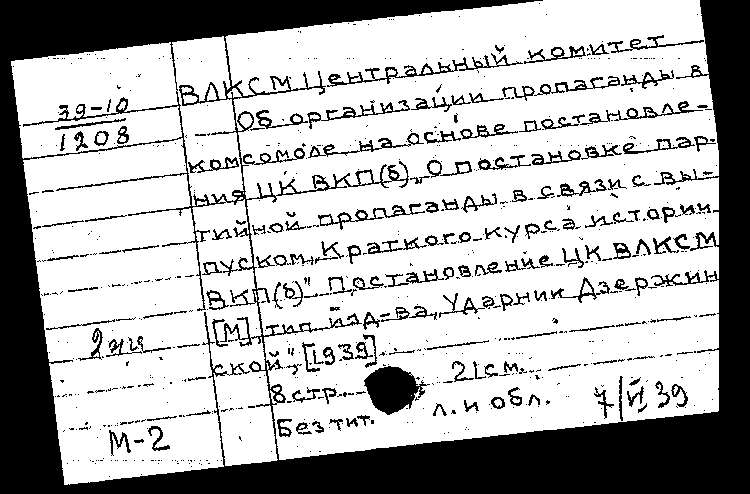 39-10
1208
ВЛКСМ Центральный комитет
Об организации пропаганды в
комсомоле на основе постановле-
ния ЦК ВКП(б) „О постановке пар-
тийной пропаганды в связи с вы-
пуском „Краткого курса истории
ВКП(б)" Постановление ЦК ВЛКСМ
[М], тип. изд-ва „Ударник Дзержин
ской", [1939].
8 стр. 21 см.
Без тит. л. и обл.
7/VI 39
М-2